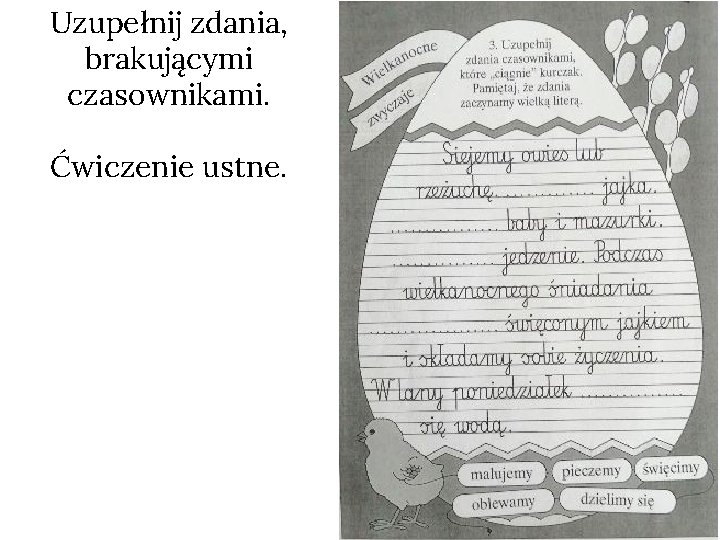 Uzupełnij zdania,
brakującymi
czasownikami.
Ćwiczenie ustne.
Wielkanocne
zwyczaje
3. Uzupełnij
zdania czasownikami,
które „ciągnie” kurczak.
Pamiętaj, że zdania
zaczynamy wielką literą.
Siejemy owies lub
rzeżuchę. ................ jajka.
................ baby i mazurki.
................ jedzenie. Podczas
wielkanocnego śniadania
................ święconym jajkiem
i składamy sobie życzenia.
W lany poniedziałek ................
się wodą.
malujemy pieczemy święcimy
oblewamy dzielimy się